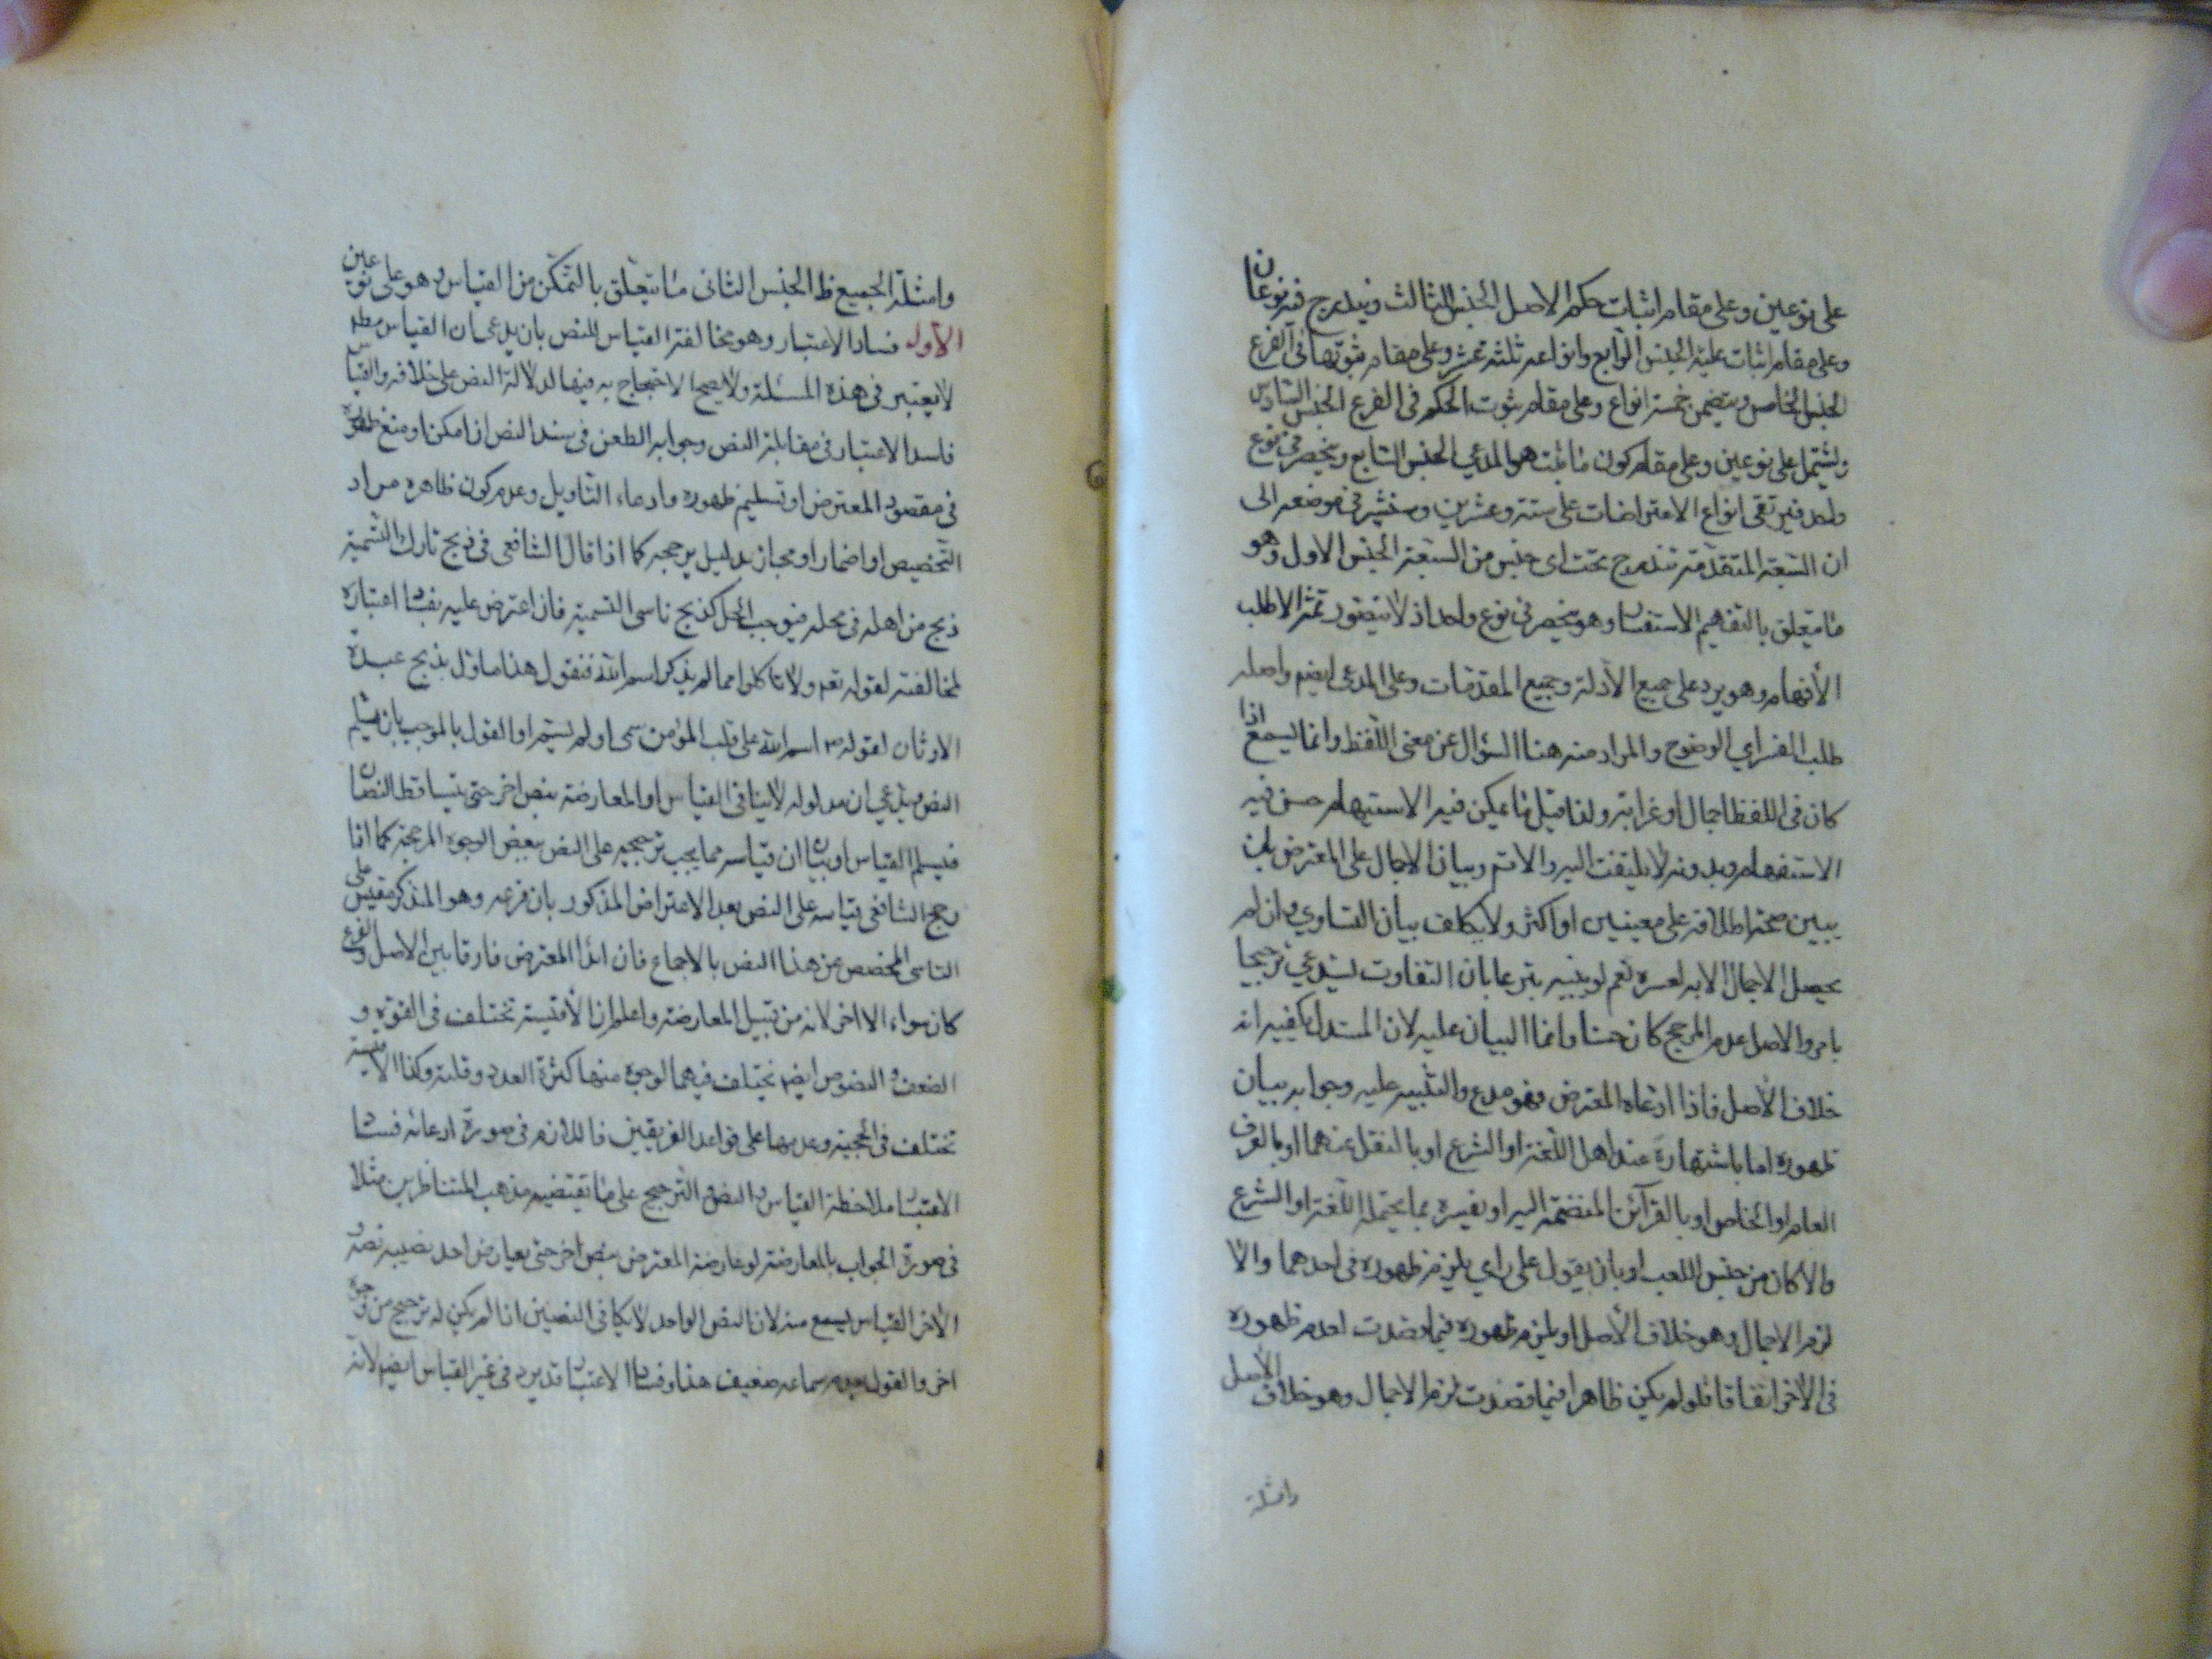 على نوعين وعلى مقام اثبات حكم الاصل الجنس الثالث ويندرج فيه نوعان
وعلى مقام اثبات علية الجنس الرابع وانواعه ثلثة عشر وعلى مقام ثبوتها في الفرع
الجنس الخامس ويتضمن خمسة انواع وعلى مقام ثبوت الحكم في الفرع الجنس السادس
ويشتمل على نوعين وعلى مقام كون ما ثبت هو المدعي الجنس السابع وينحصر في نوع
واحد فيرتقى انواع الاعتراضات على ستة وعشرين وسنشير في موضعه الى
ان السبعة المتقدمة تندرج تحت اى جنس من السبعة الجنس الاول وهو
ما يتعلق بالتفهيم الاستفسار وهو ينحصر في نوع واحد اذ لا يتصور ثمة الا طلب
الأفهام وهو يرد على جميع الأدلة وجميع المقدمات وعلى المدعى ايضم واصله
طلب الفسراي الوضوح والمراد منه هنا السؤال عن معنى اللفظ وانما يسمع اذا
كان في اللفظ اجمال او غرابة ولذا قيل ما يمكن فيه الاستبهام حسن فيه
الاستفهام وبدونه لا يلتفت اليه والاتم وبيان الاجمال على المعترض بان
يبين صحة اطلاقه على معنيين او اكثر ولا يكلف بيان التساوي وان لم
يحصل الاجمال الا به لعسره نعم لو بينه تبرعا بان التفاوت يستدعي ترجيحا
بامر والاصل عدم المرجح كان حسنا وانما البيان عليه لان المستدل يكفيه انه
خلاف الأصل فاذا ادعاه المعترض فهو مدع والتنبيه عليه وجوابه ببيان
ظهوره اما باشتهاره عند اهل اللغة او الشرع او بالنقل عنهما او بالعرف
العام او الخاص او بالقرآئن المنضمة اليه او تفسيره بما يحتمله اللغة او الشرع
والا كان من جنس اللعب او بان يقول على راي يلزم ظهوره في احدهما والا
لزم الاجمال وهو خلاف الأصل او يلزم ظهوره فيما قصدت لعدم ظهوره
في الآخر اتفاقا فلو لم يكن ظاهرا فيما قصدت لزم الاجمال وهو خلاف الأصل
وامثلة
وامثلة الجميع ظ الجنس الثانى ما يتعلق بالتمكن من القياس وهو على نوعين
الأول فساد الاعتبار وهو مخالفة القياس للنص بان يدعى ان القياس مطلقا
لا يعتبر في هذه المسئلة ولا يصح الاحتجاج به فيها لدلالة النص على خلافه والقياس
فاسد الاعتبار في مقابلة النص وجوابه الطعن في سند النص ان امكن او منع ظهوره
في مقصود المعترض او تسليم ظهوره وادعاء التأويل وعدم كون ظاهره مراد
التخصيص او اضمار او مجاز بدليل يرجحه كما اذا قال الشافعى في ذبح تارك التسمية
ذبح من اهله في محله فيوجب الحل كذبح ناسى التسمية فان اعترض عليه بفساد اعتباره
لمخالفته لقوله تعم ولا تاكلوا مما لم يذكر اسم الله فنقول هذا ماول بذبح عبدة
الاوثان لقوله م اسم الله على قلب المؤمن سمى او لم يسم او القول بالموجب بان يسلم
النص ويدعي ان مدلوله لا ينافى القياس او المعارضة بنص اخر حتى يتساقط النصان
فيسلم القياس او بيان ان قياسه مما يجب ترجيحه على النص ببعض الوجوه المرجحة كما اذا
رجح الشافعى قياسه على النص بعد الاعتراض المذكور بان فرعه وهو المذكر مقيس على
الناسى المخصص عن هذا النص بالاجماع فان ابدا المعترض فارقا بين الاصل والفرع
كان سواء الا اخر لانه من قبيل المعارضة واعلم ان الأقيسة تختلف في القوة و
الضعف والنصوص ايضم تختلف فيهما لوجوه منها كثرة العدد وقلته وكذا الاقيسة
تختلف في الحجية وعدمها على قواعد الفريقين فاللازم في صورة ادعائه فساد
الاعتبار ملاحظة القياس والنص والترجيح على ما تقتضيه مذهب المتناظرين مثلا
في صورة الجواب بالمعارضة لو عارضه المعترض بنص اخر حتى يعارض احد نصيه نصه و
الآخر القياس يسمع منه لان النص الواحد لا يكافى النصين اذا لم يكن له ترجيح من وجوه
اخر والقول بعدم سماعه ضعيف هذا وفساد الاعتبار قد يرد في غير القياس ايضم لانه